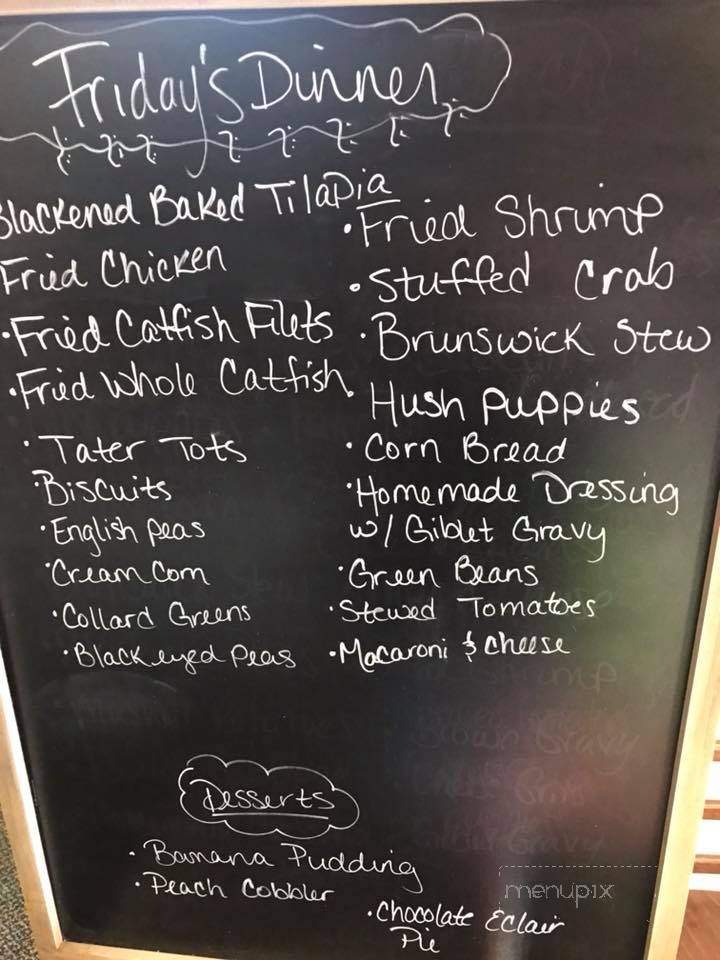 Friday's Dinner
Blackened Baked Tilapia
Fried Chicken
•Fried Catfish Filets
•Fried Whole Catfish
•Tater Tots
•Biscuits
•English peas
•Cream Corn
•Collard Greens
•Blackeyed Peas
•Fried Shrimp
•Stuffed Crab
•Brunswick Stew
Hush puppies
•Corn Bread
•Homemade Dressing
w/ Giblet Gravy
•Green Beans
•Stewed Tomatoes
•Macaroni & cheese
Desserts
•Banana Pudding
•Peach Cobbler
•Chocolate Eclair
Pie
menupix